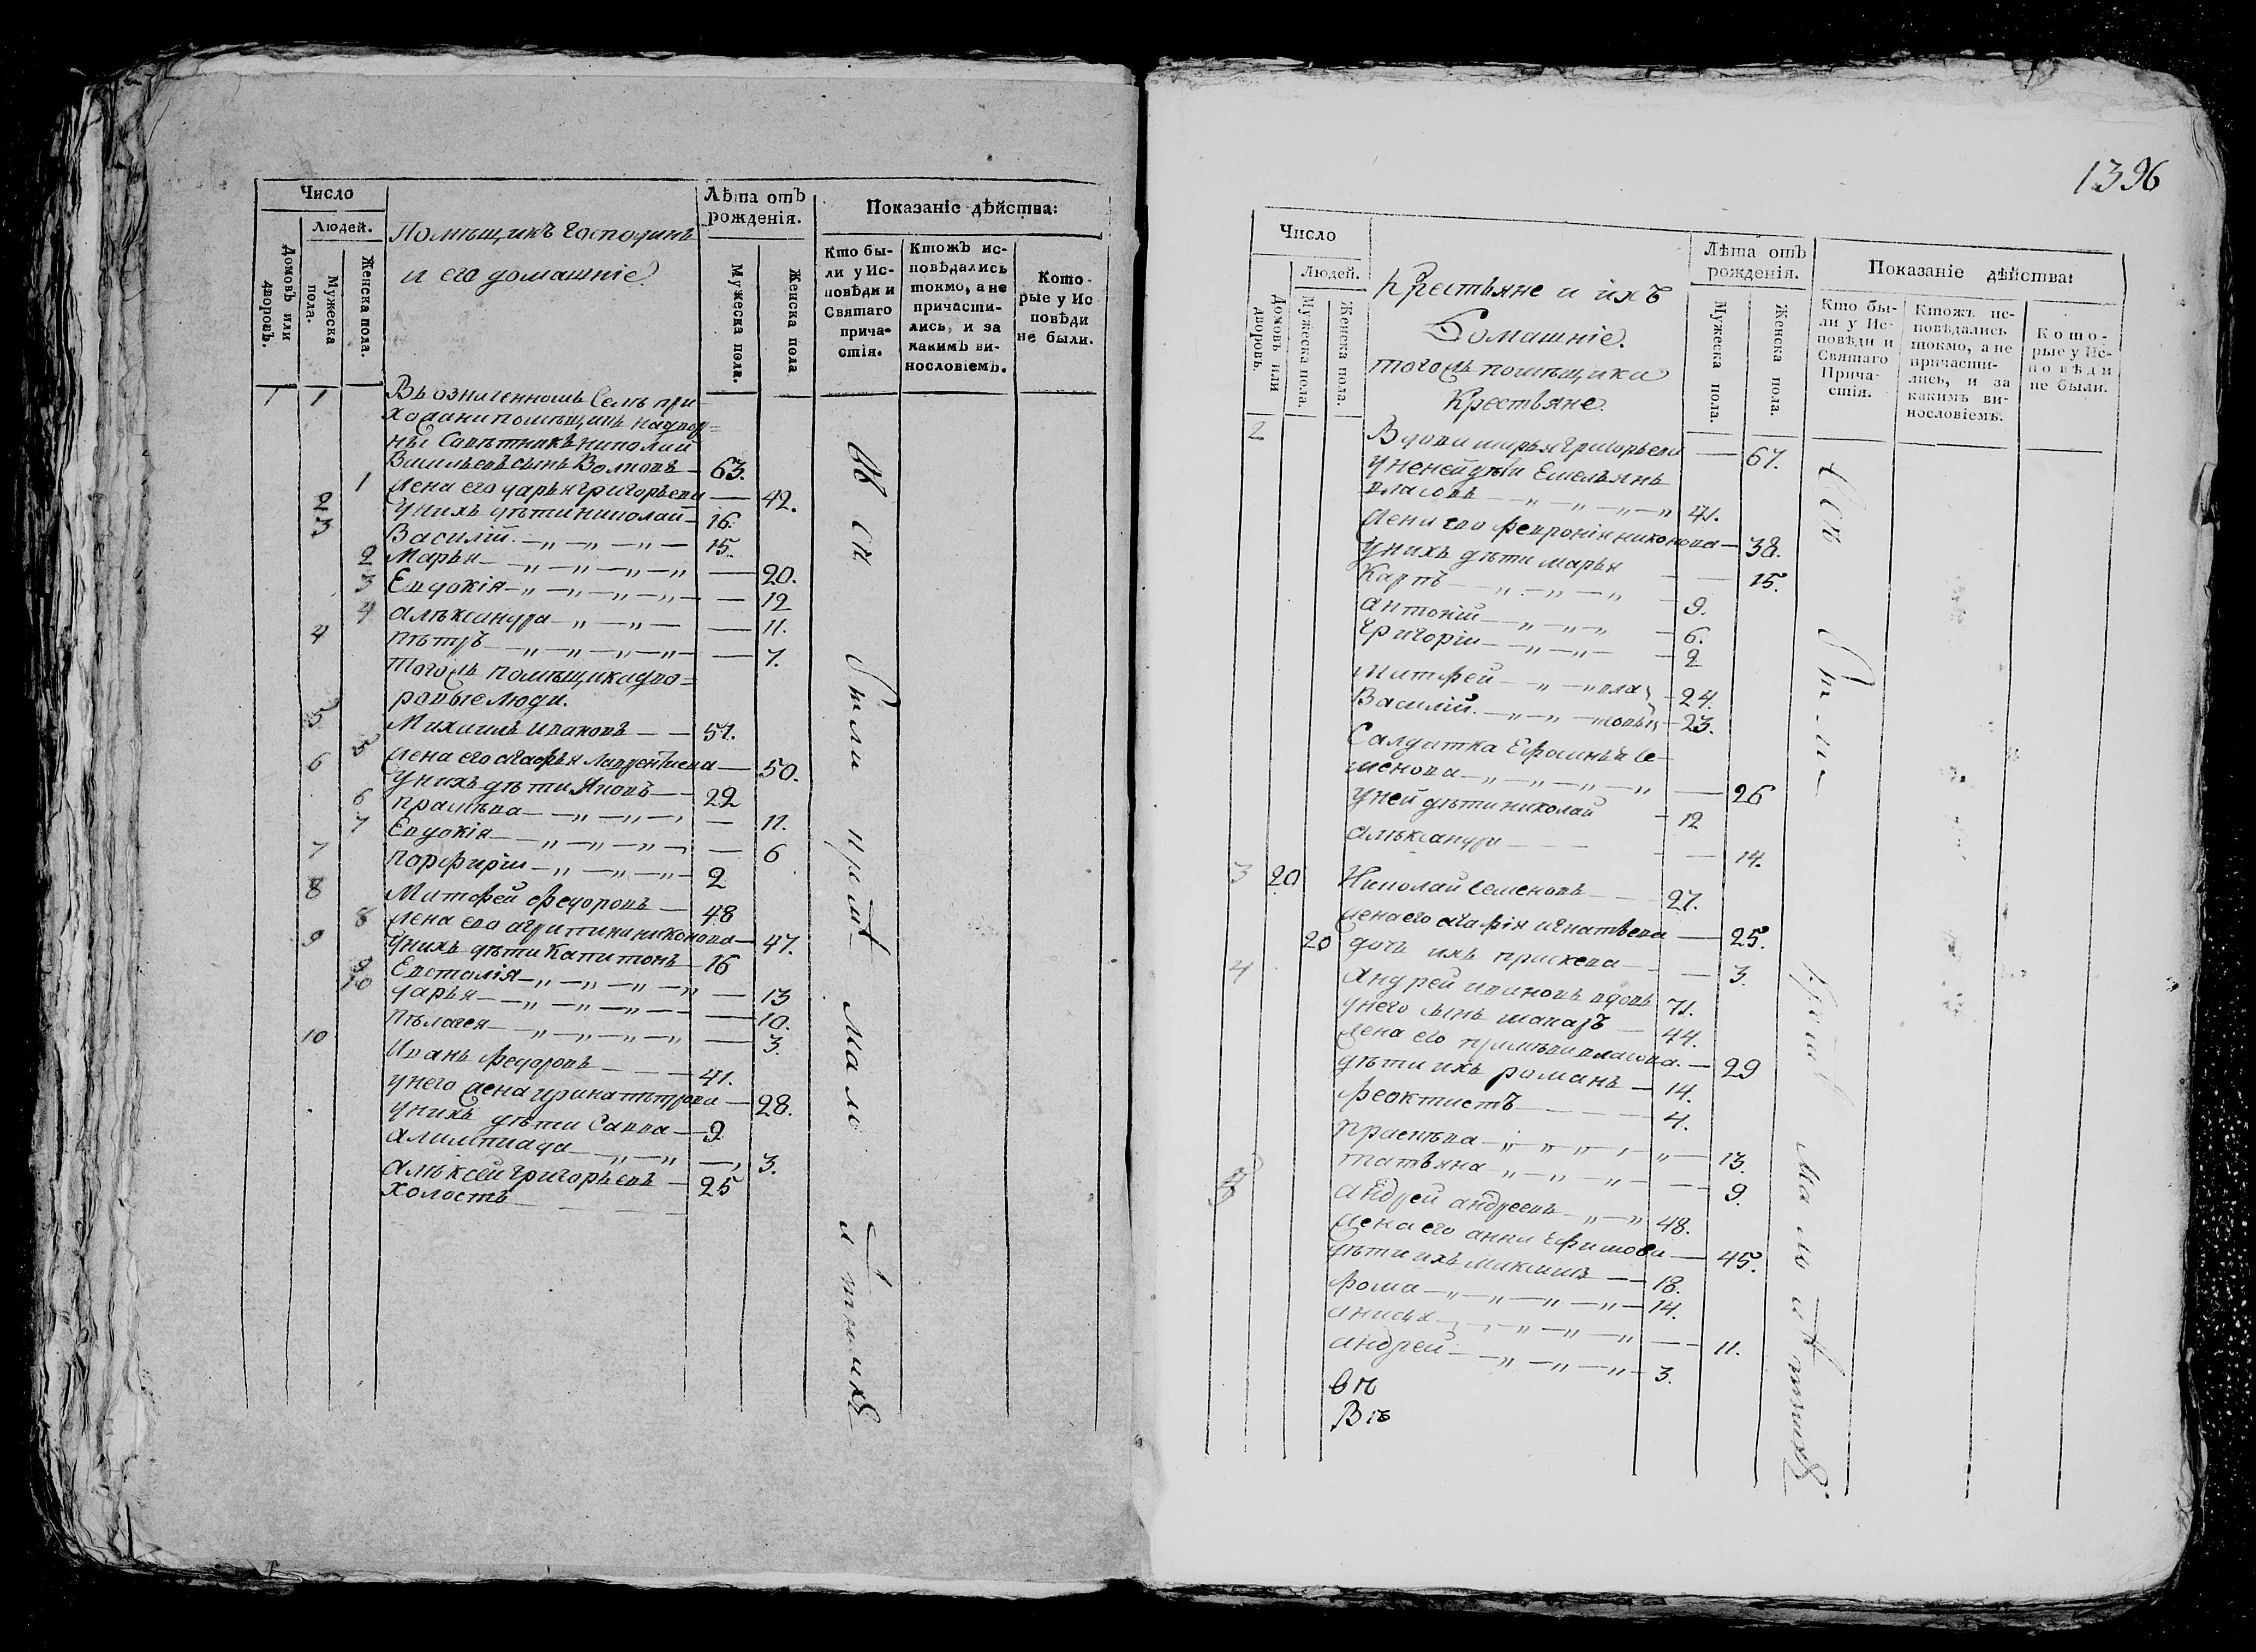 Число
Людей.
Домовъ или дворовъ.
Мужеска пола.
Женска пола.
Помѣщикъ Господинъ
и его домашніе.
Лѣта отъ рожденія.
Мужеска пола.
Женска пола
Показаніе дѣйства:
Кто были у Исповѣди и Святаго причастія.
Ктожъ исповѣдались токмо, а не причастились, и за какимъ винословіемъ.
Которые у Исповѣди не были.
1 1 Въ означенномъ Селѣ при
ны Совѣтникъ николай
Васильевъ сынъ Волковъ — 63.
1 Жена его дарья григорьева — 42.
2 У нихъ дѣти николай — 16.
3 Василій — 15.
2 Марья — 20.
3 Евдокія — 12
4 алѣксандра — 11.
4 пѣтръ — 7.
тогожъ помѣщика дво=
ровые люди.
5 Михаилъ ивановъ — 51.
5 Жена его агафья лаврентиева — 50.
6 У нихъ дѣти Яковъ — 22
6 праскѣва — 11.
7 Евдокія — 6
7 порфирій — 2
8 Матфей федоровъ — 48
8 Жена его агрипина никонова — 47.
9 У нихъ дѣти Капитонъ — 16
9 Евстолія — 13
10 дарья — 10.
пѣлагея — 3.
10 Иванъ федоровъ — 41.
у него жена ирина пѣтрова — 28.
у нихъ дѣти Савва — 9
алимпиада — 3.
алѣксей григорьевъ — 25
холостъ
Всѣ были кромѣ малолѣтнихъ
1396
Число
Людей.
Домовъ или дворовъ.
Мужеска пола.
Женска пола.
Крестьяне и ихъ
Домашніе.
тогожъ помѣщика
Крестьяне.
Лѣта отъ рожденія.
Мужеска пола.
Женска пола.
Показаніе дѣйства:
Кто были у Исповѣди и Святаго Причастія.
Ктожъ исповѣдались токмо, а не причастились, и за какимъ винословіемъ.
Которые у Исповѣди не были.
2 Вдова марья григорьева — 67.
у неней дѣти Емельянъ
власовъ — 41.
Жена его февронія никонова — 38.
У нихъ дѣти марья — 15.
Карпъ — 9.
антоній — 6.
григорій — 2
Матфей — вла — 24.
Василій — совы — 23.
Салдатка Ефимья Се-
менова — 26
у ней дѣти николай — 12
алѣксандра — 14.
3 20 Николай семеновъ — 27.
Жена его агафія игнатьева — 25.
20 дочь ихъ праскева — 3.
4 Андрей ивановъ вдовъ 71.
у него сынъ макаръ — 44.
Жена его праскѣва власова — 29
дѣти ихъ романъ — 14.
феоктистъ — 4.
праскѣва — 13.
татьяна — 9.
5 андрей андреевъ — 48.
Жена его анна Ефимова — 45.
дѣти ихъ максимъ — 18.
фома — 14.
анисья — 11.
андрей — 3.
вп
Въ
Всѣ были кромѣ малолѣтнихъ